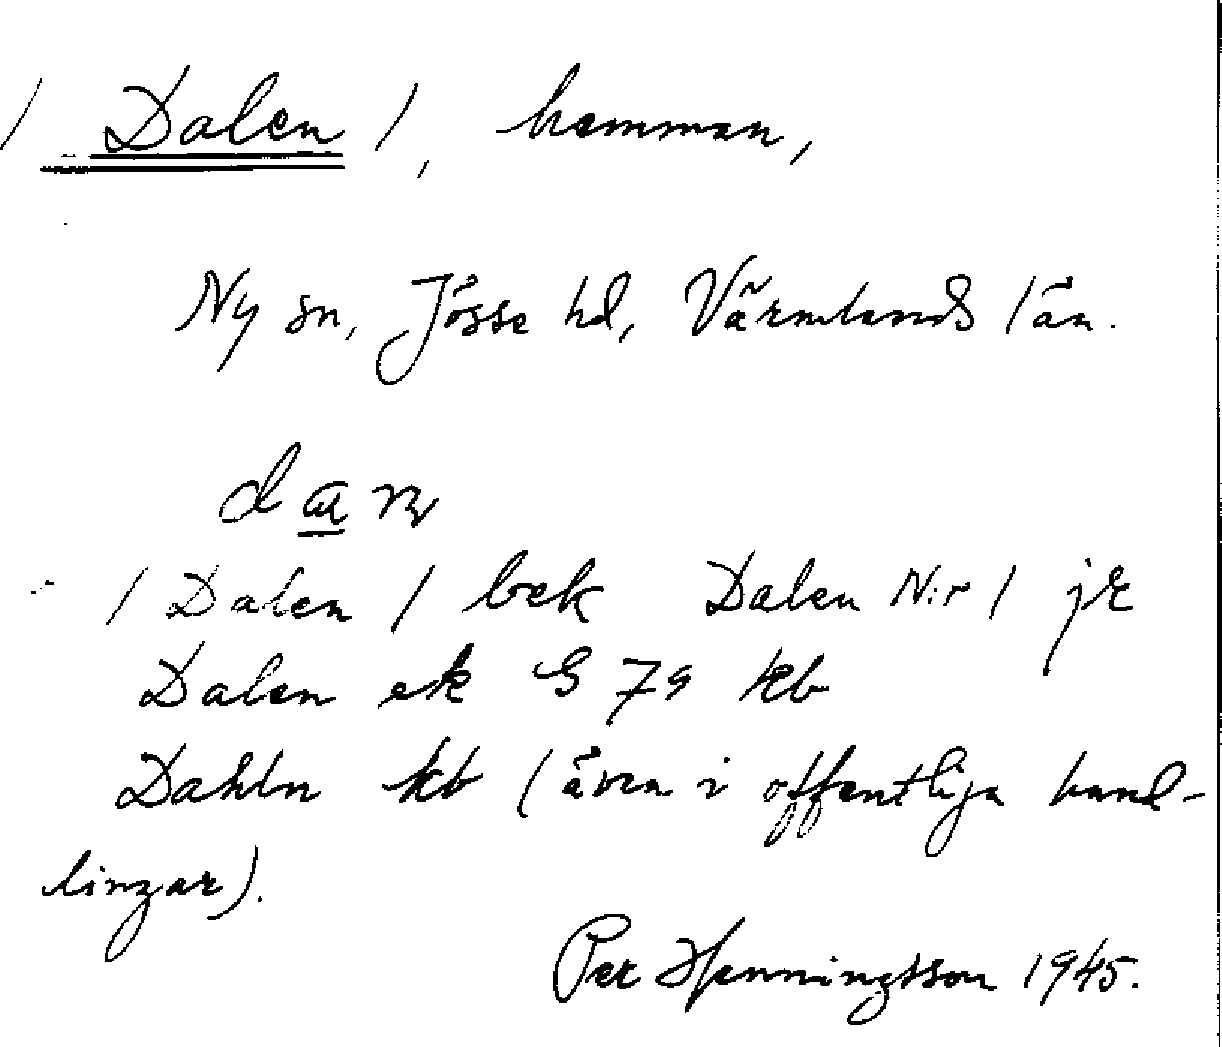 / Dalen /, hemman,
Ny sn, Jösse hd, Värmlands län.
/ Dalen / bek Dalen N:r 1 jr
Dalen ek G 79 kb
Dahln kb (även i offentliga hand-
lingar).
Per Henningsson 1945.